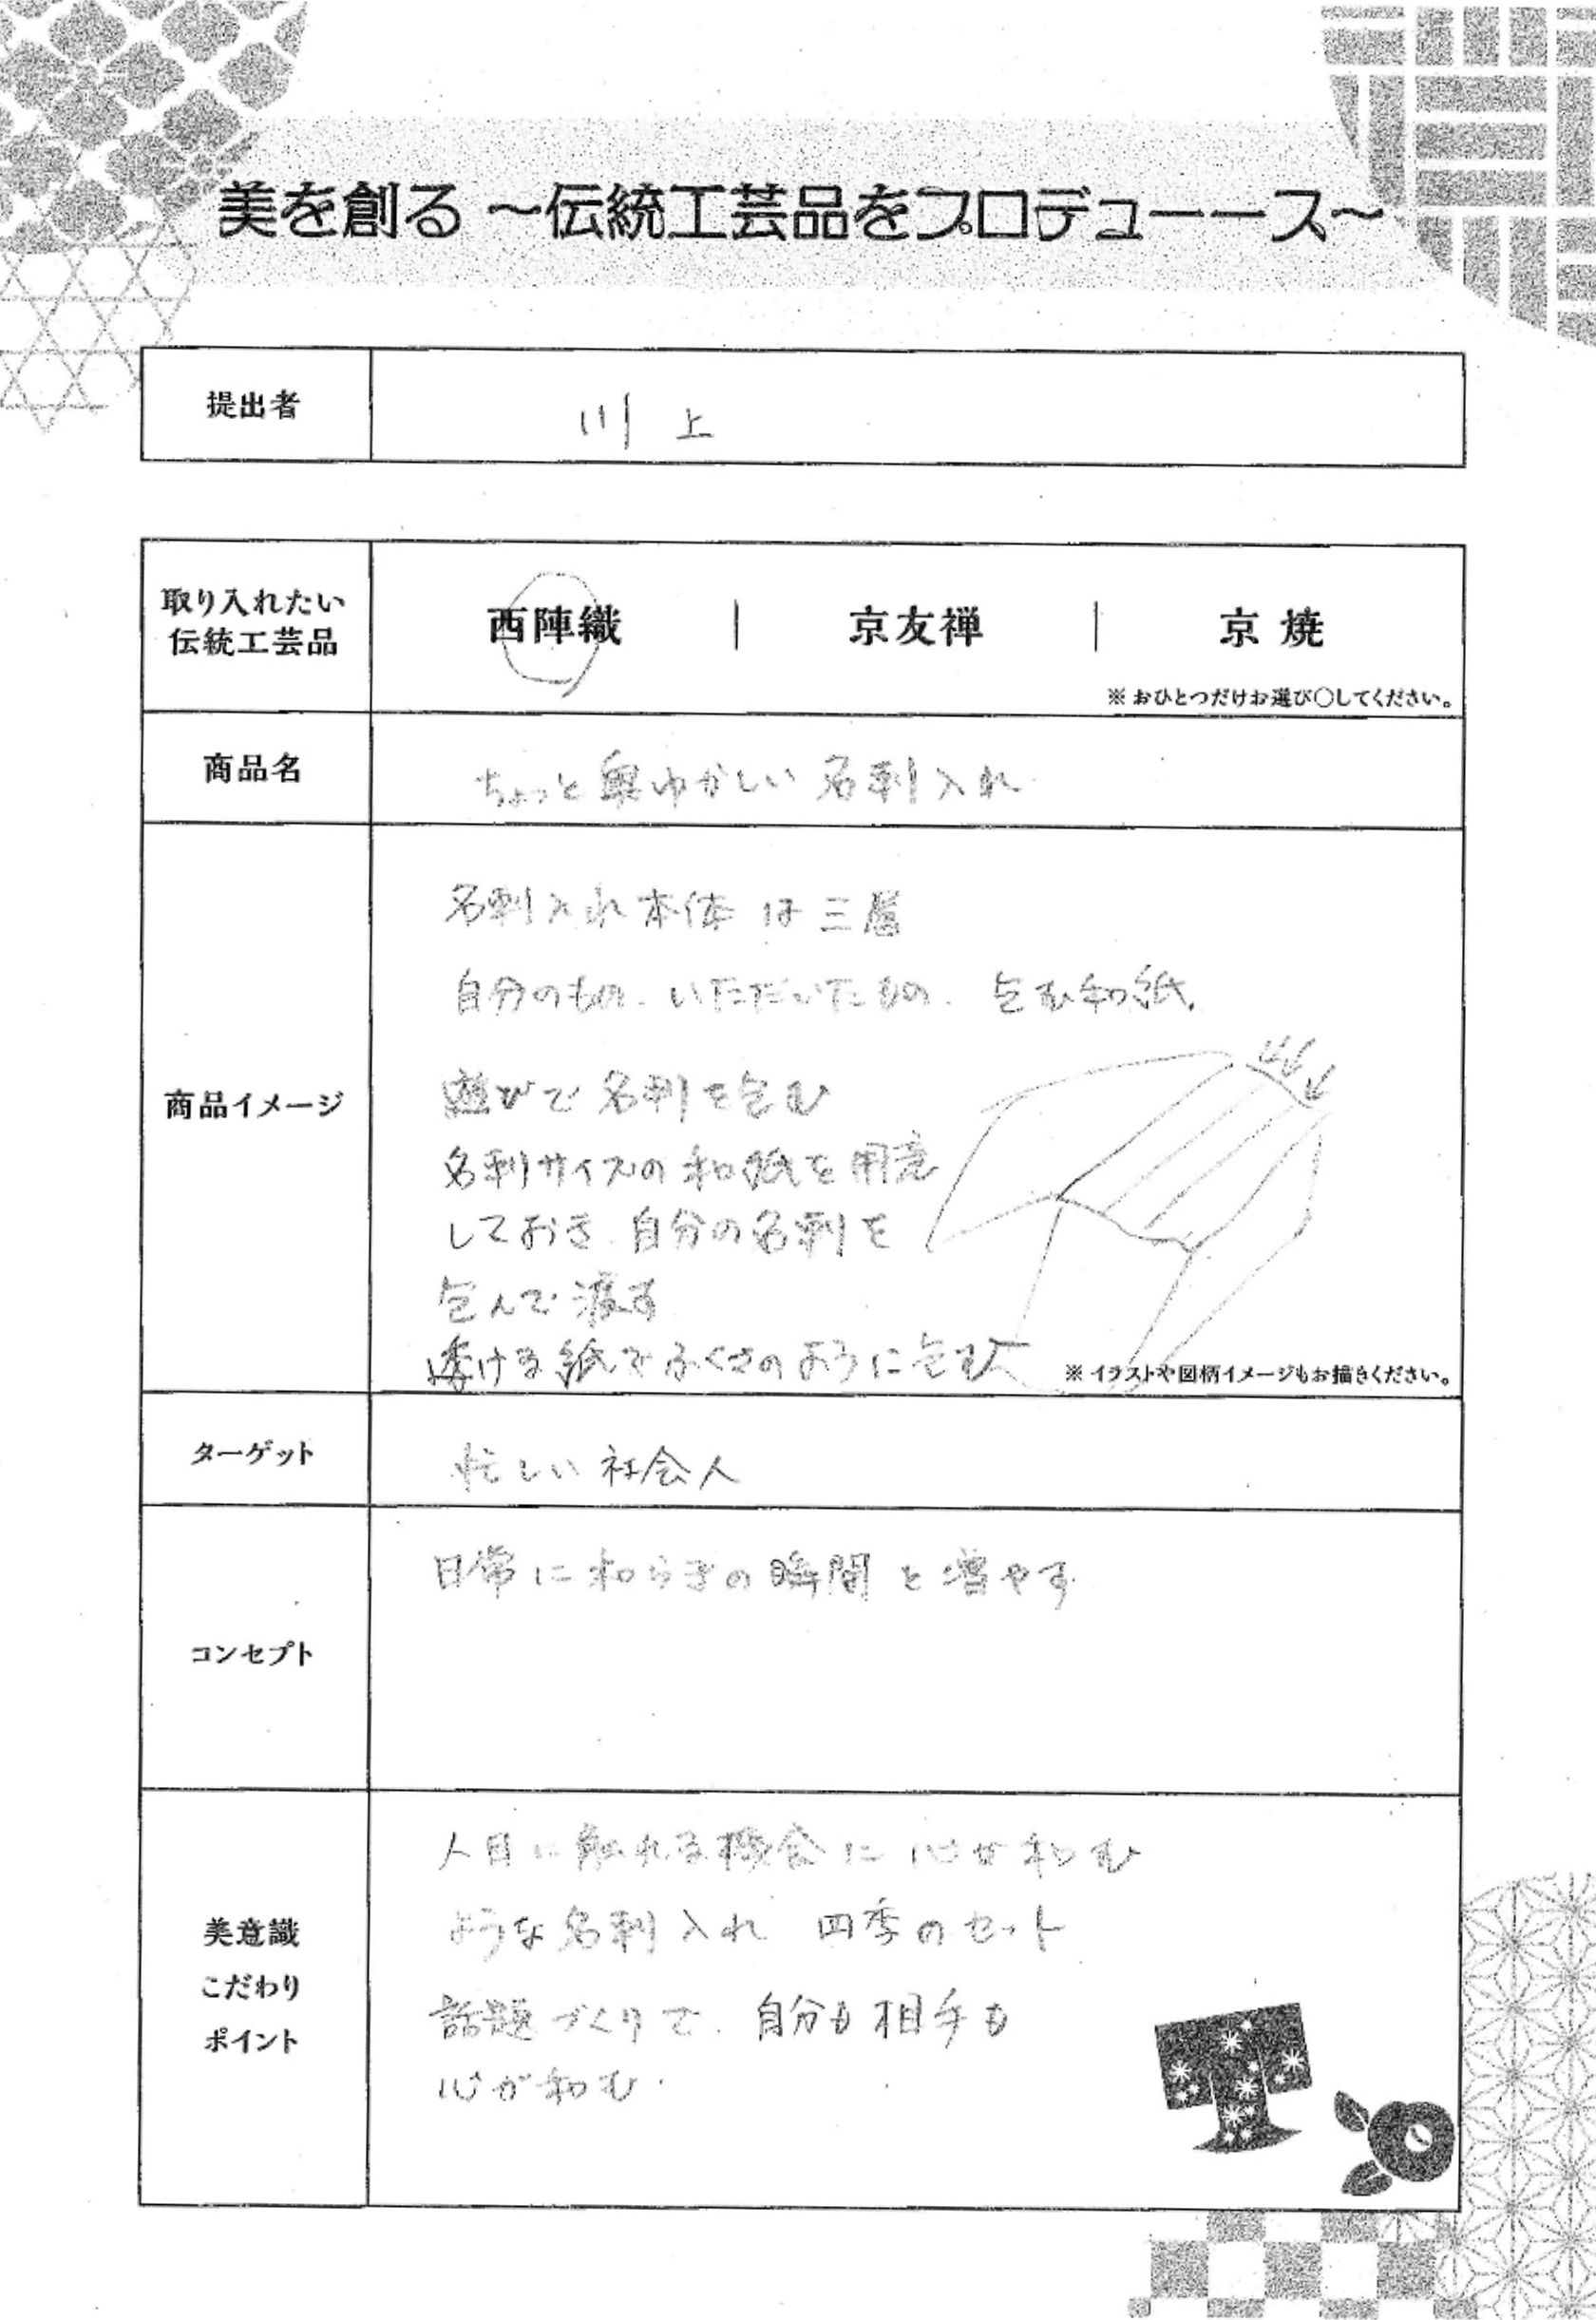 美を創る ～伝統工芸品をプロデューース～
提出者
川上
取り入れたい
伝統工芸品
西陣織 | 京友禅 | 京焼
※ おひとつだけお選び〇してください。
商品名
ちょっと奥ゆかしい名刺入れ
商品イメージ
名刺入れ本体は三層
自分のもの、いただいたもの、包む和紙。
遊びで名刺を包む
名刺サイズの和紙を用意
しておき、自分の名刺を
包んで渡す
透ける紙でふくさのように包む
※ イラストや図柄イメージもお描きください。
ターゲット
忙しい社会人
コンセプト
日常に和らぎの瞬間を増やす
美意識
こだわり
ポイント
人目に触れる機会に心が和む
ような名刺入れ 四季のセット
話題づくりで、自分も相手も
心が和む。